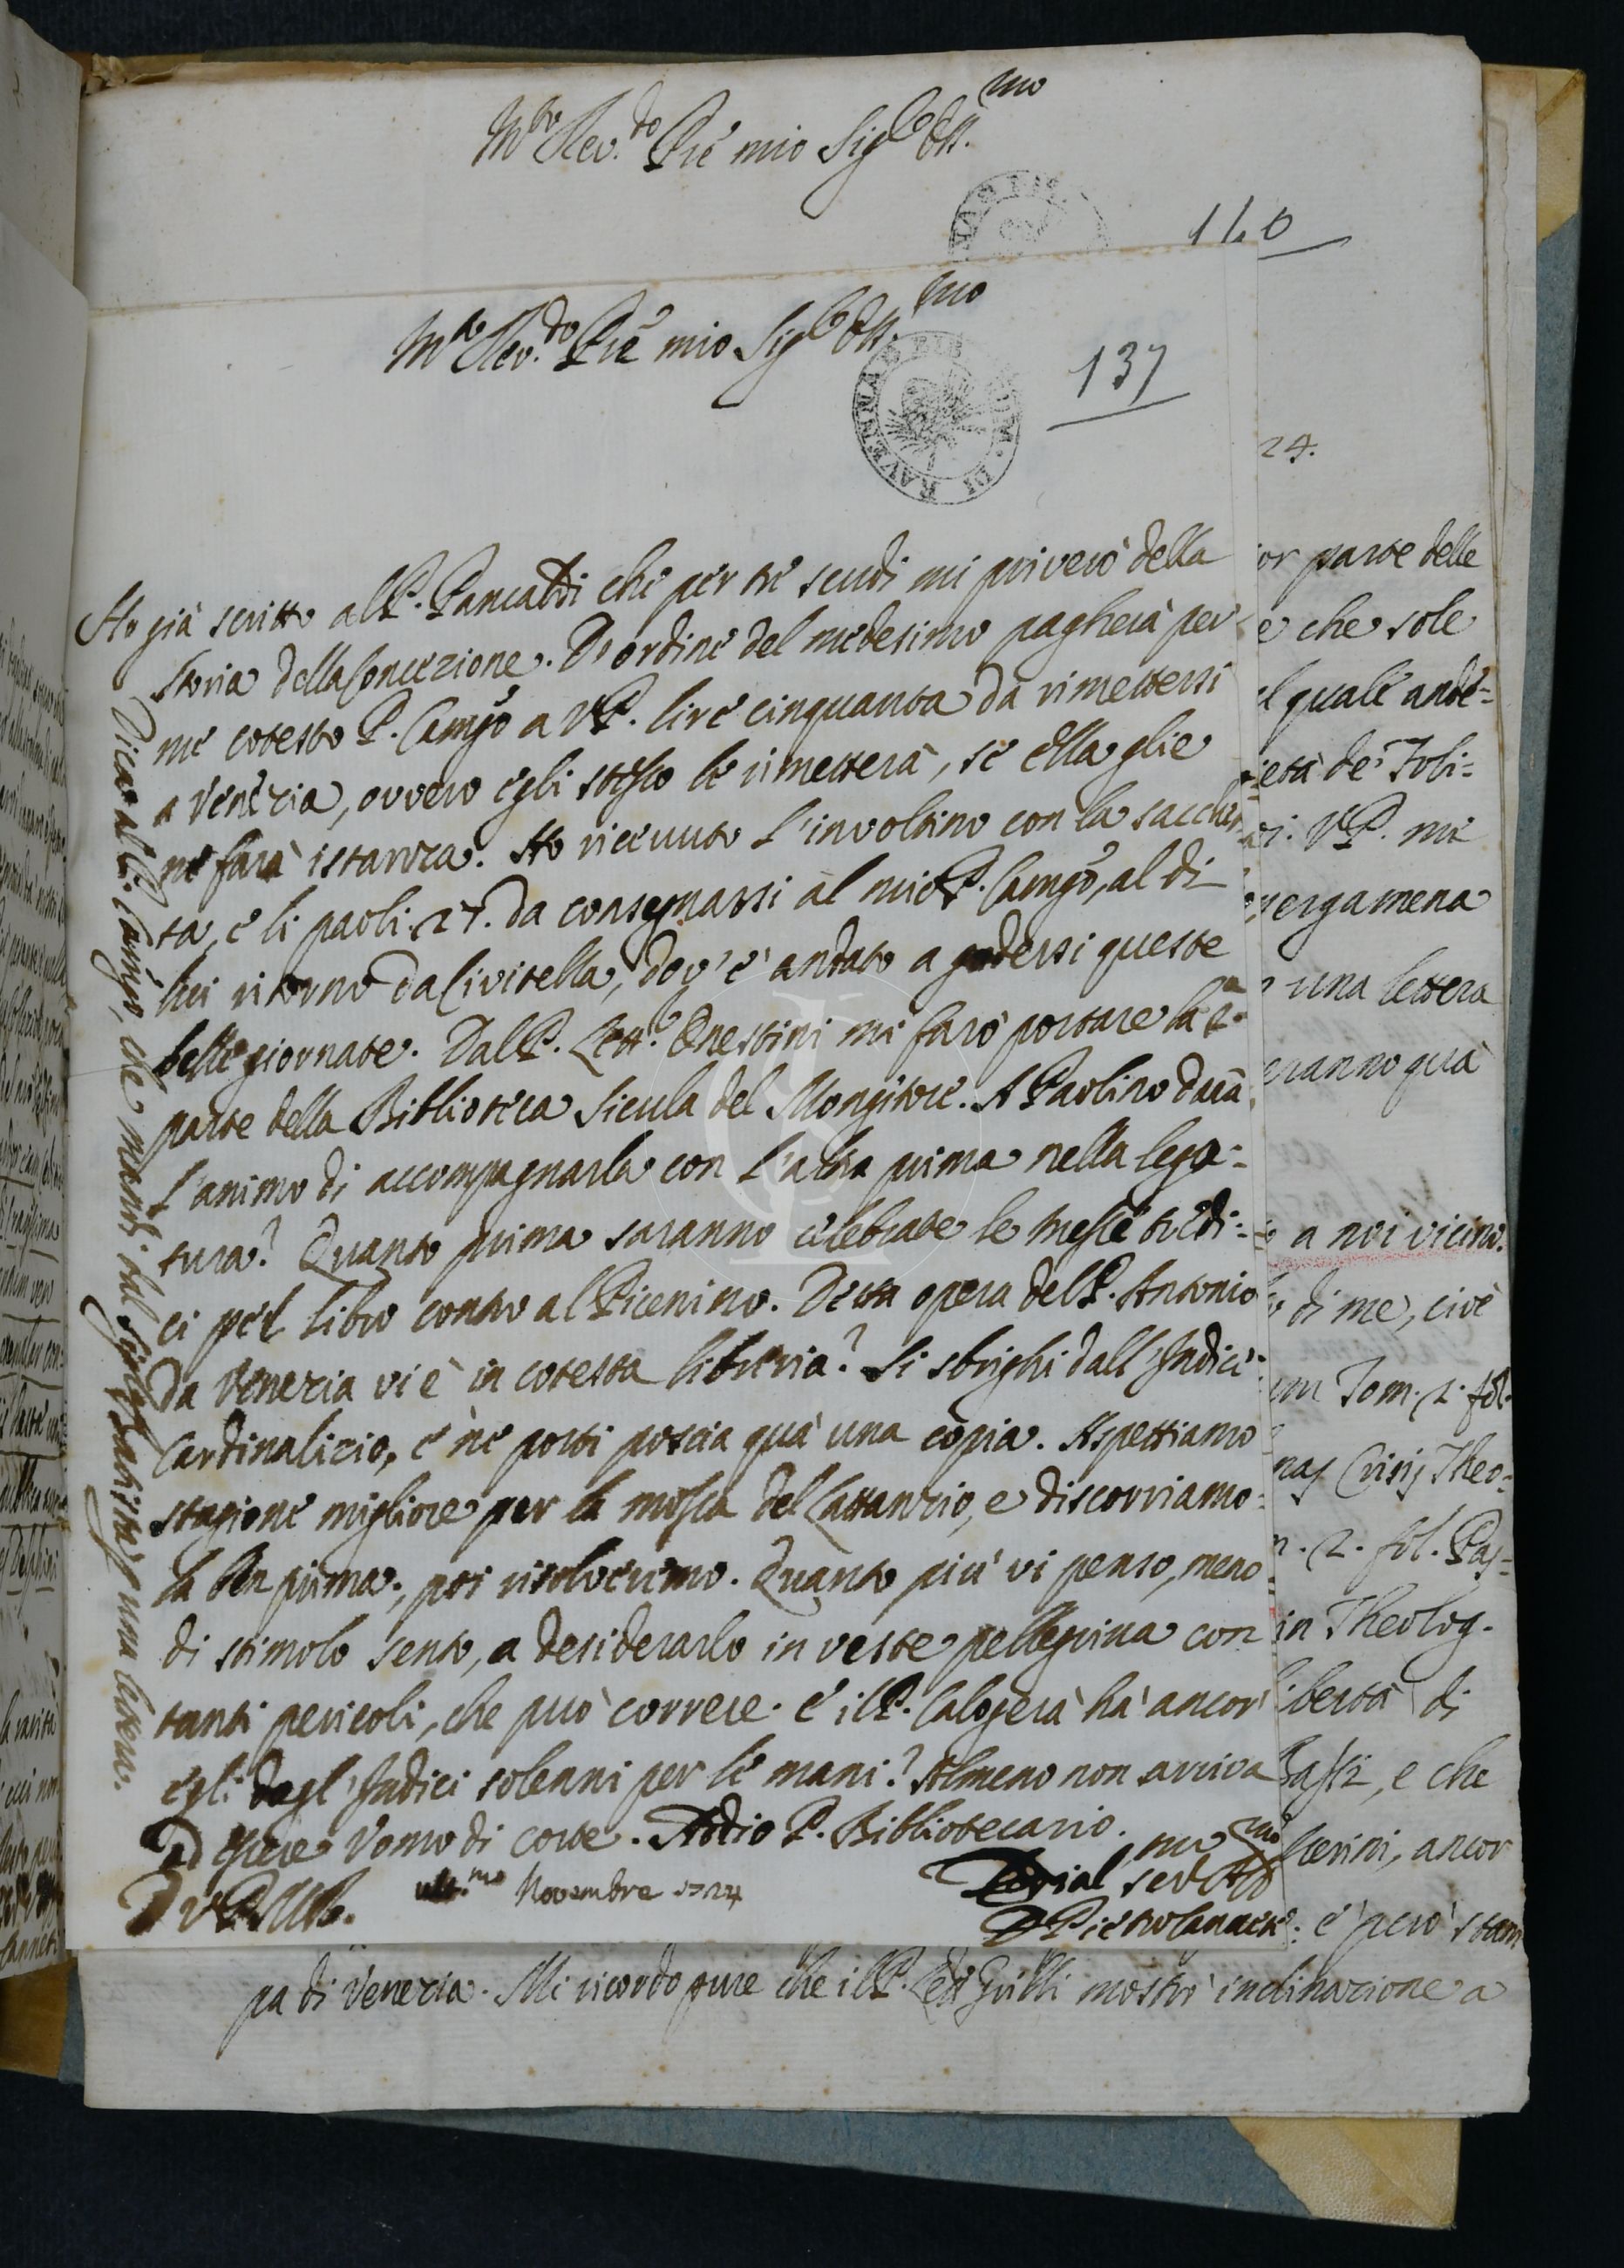 M.to Rev.do Pre mio Sig.e Oss.mo
140
M.to Rev.do Pre mio Sig.e Oss.mo
137
RAVENNA
Ho già scritto al P. Pancaldi che per trè scudi mi priverò della
storia della Concezione. D'ordine del medesimo pagherà per
me cotesto P. Camgo a VP. lire cinquanta da rimettersi
a Venezia, ovvero egli stesso le rimetterà, se ella glie
ne farà istanza. Ho ricevuto l'involtino con la sacchet
ta, e li paoli 27. da consegnarsi al mio P. Camgo, al di
lui ritorno da Civitella, dov'è andato a godersi queste
belle giornate. Dal P. Lett.e Onestini mi farò portare la 2.a
parte della Biblioteca Sicula del Mongitore. A Paolino darà
l'animo di accompagnarla con l'altra prima nella lega-
tura? Quanto prima saranno celebrate le messe tredi-
ci pel libro contro al Picenino. Detta opera del P. Antonio
da Venezia vi è in cotesta libreria? Si sbrighi dall'Indice
Cardinalizio, e ne porti poscia quà una copia. Aspettiamo
stagione migliore per la mossa del Lattanzio, e discorriamo-
la ben prima, poi risolveremo. Quanto più vi penso, meno
di stimolo sento, a desiderarlo in veste pellegrina con
tanti pericoli, che può correre. e il P. Calogerà hà ancor
egli dagl'Indici solenni per le mani? Almeno non arriva
ad essere Uomo di corte. Addio P. Bibliotecario.
D VP M R.
Novembre 1724
D Pietro Canneti
Dica al P. Camgo, che mandi dal una lettera.
24.
or parte delle
e che sole
l quale ande-
ietà de' Toli-
VP. mi
pergamena
una lettera
eranno quà
a noi vicino.
di me, cioè
Tom. 2. fol.
nas Crisis Theo-
2. fol. Pas-
in Theolog.
libertà di
e che
ancor
e però stam
pa di Venezia. Mi ricordo pure che il P. Lett. Grilli mostrò inclinazione a